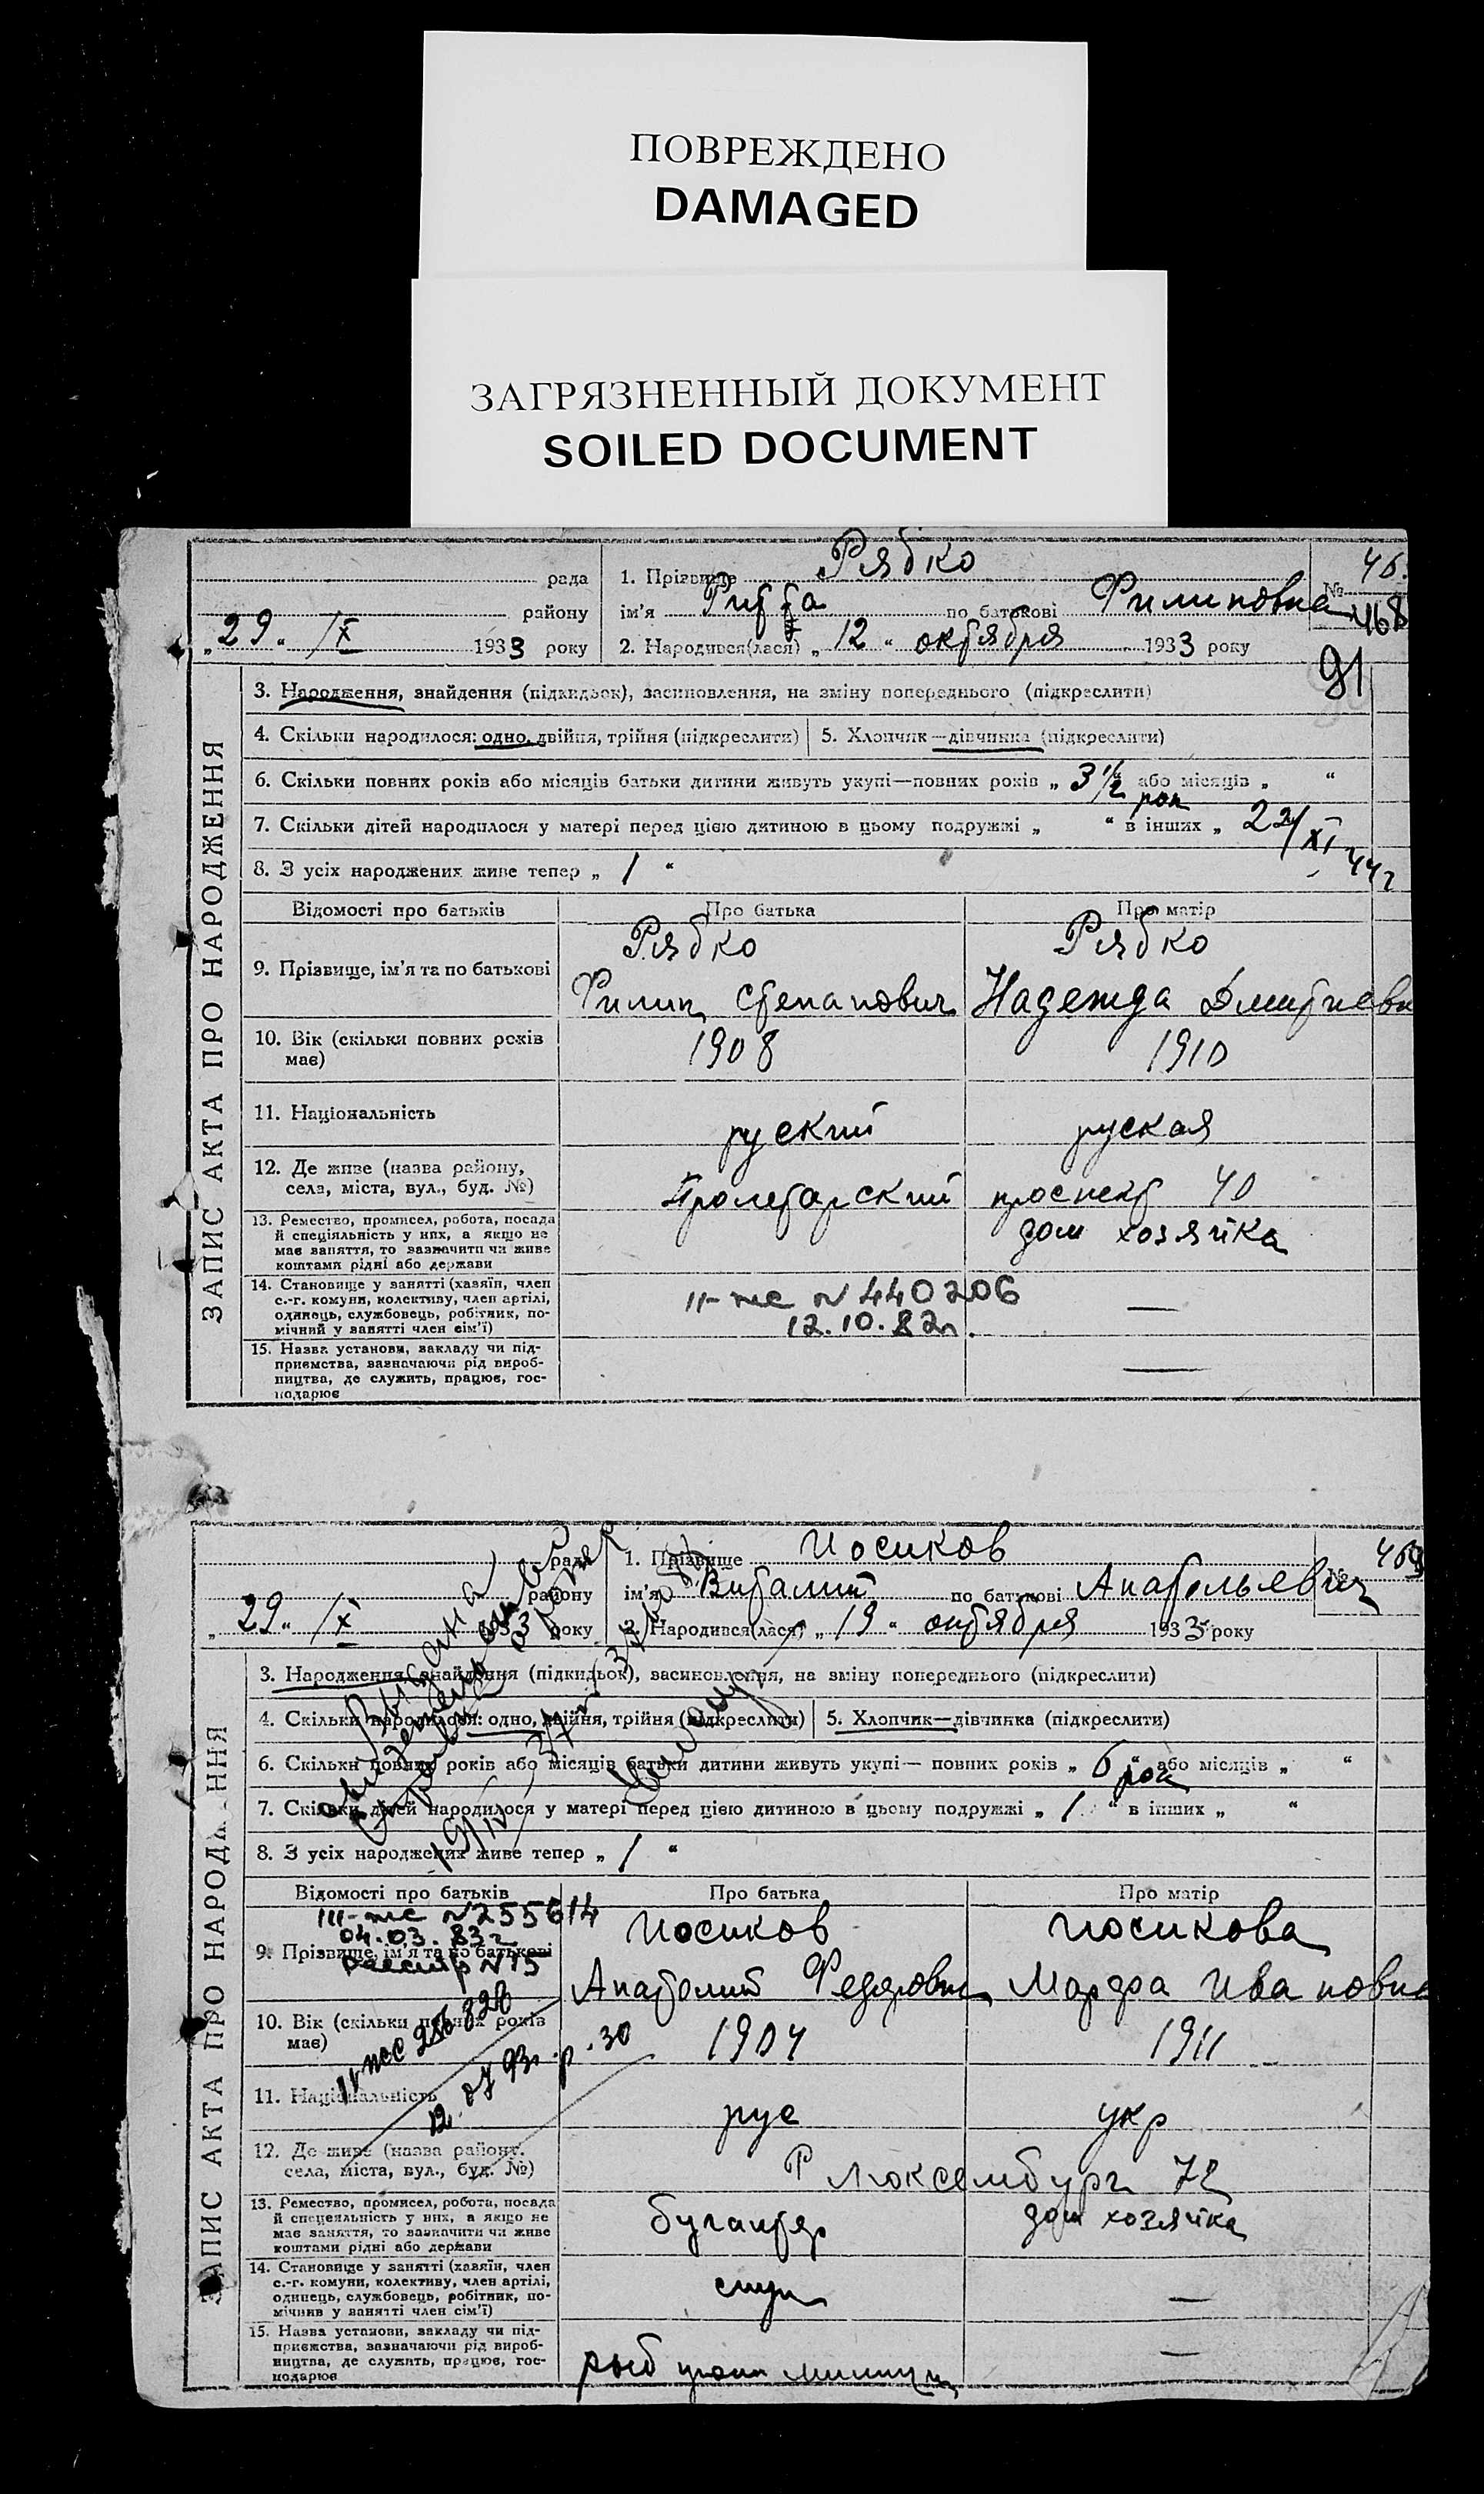 ПОВРЕЖДЕНО
DAMAGED
ЗАГРЯЗНЕННЫЙ ДОКУМЕНТ
SOILED DOCUMENT
ЗАПИС АКТА ПРО НАРОДЖЕННЯ
рада
району
„29“ /X 1933 року
1. Прізвище Рябко
ім'я по батькові Филиповна
2. Народився(лася) „12“ октября 1933 року
№ 46.
468
91
3. Народження, знайдення (підкидьок), засиновлення, на зміну попереднього (підкреслити)
4. Скільки народилося: одно, двійня, трійня (підкреслити) 5. Хлопчик—дівчинка (підкреслити)
6. Скільки повних років або місяців батьки дитини живуть укупі—повних років „3 1/2“ або місяців „ “
рок
7. Скільки дітей народилося у матері перед цією дитиною в цьому подружжі „ “ в інших „
22/XI 44г
8. З усіх народжених живе тепер „ 1 “
Відомості про батьків Про батька Про матір
9. Прізвище, ім'я та по батькові
Рябко Рябко
Филип Степанович Надежда Дмитриевн
10. Вік (скільки повних років має) 1908 1910
11. Національність руский руская
12. Де живе (назва району, села, міста, вул., буд. №) Пролетарский проспект 40
13. Ремество, промисел, робота, посада й спеціяльність у них, а якщо не має заняття, то зазначити чи живе коштами рідні або держави
дом хозяйка
14. Становище у занятті (хазяїн, член с.-г. комуни, колективу, член артілі, одинець, службовець, робітник, помічний у занятті член сім'ї)
II-жс N 440206 —
12.10.82г.
15. Назва установи, закладу чи підприємства, зазначаючи рід виробництва, де служить, працює, господарює
—
ЗАПИС АКТА ПРО НАРОДЖЕННЯ
рада
району
„29“ /X 1933 року
1. Прізвище Иосиков
ім'я Виталий по батькові Анатольевич
2. Народився(лася) „19“ октября 1933 року
№ 469
3. Народження, знайдення (підкидьок), засиновлення, на зміну попереднього (підкреслити)
4. Скільки народилося: одно, двійня, трійня (підкреслити) 5. Хлопчик—дівчинка (підкреслити)
6. Скільки повних років або місяців батьки дитини живуть укупі— повних років „6“ або місяців „ “
рок
7. Скільки дітей народилося у матері перед цією дитиною в цьому подружжі „1“ в інших „ “
8. З усіх народжених живе тепер „ 1 “
Відомості про батьків Про батька Про матір
III-жс N255614
04.03.83г
9. Прізвище, ім'я та по батькові
реестр N75
Иосиков Иосикова
Анатолий Федорович Марфа Ивановна
10. Вік (скільки повних років має) 1904 1911
11. Національність рус укр
12. Де живе (назва району, села, міста, вул., буд. №) Р Люксембург 72
13. Ремество, промисел, робота, посада й спецеяльність у них, а якщо не має заняття, то зазначити чи живе коштами рідні або держави
бугалтер дом хозяйка
14. Становище у занятті (хазяїн, член с.-г. комуни, колективу, член артілі, одинець, службовець, робітник, помічнив у занятті член сім'ї)
служ —
15. Назва установи, закладу чи підприємства, зазначаючи рід виробництва, де служить, працює, господарює
—